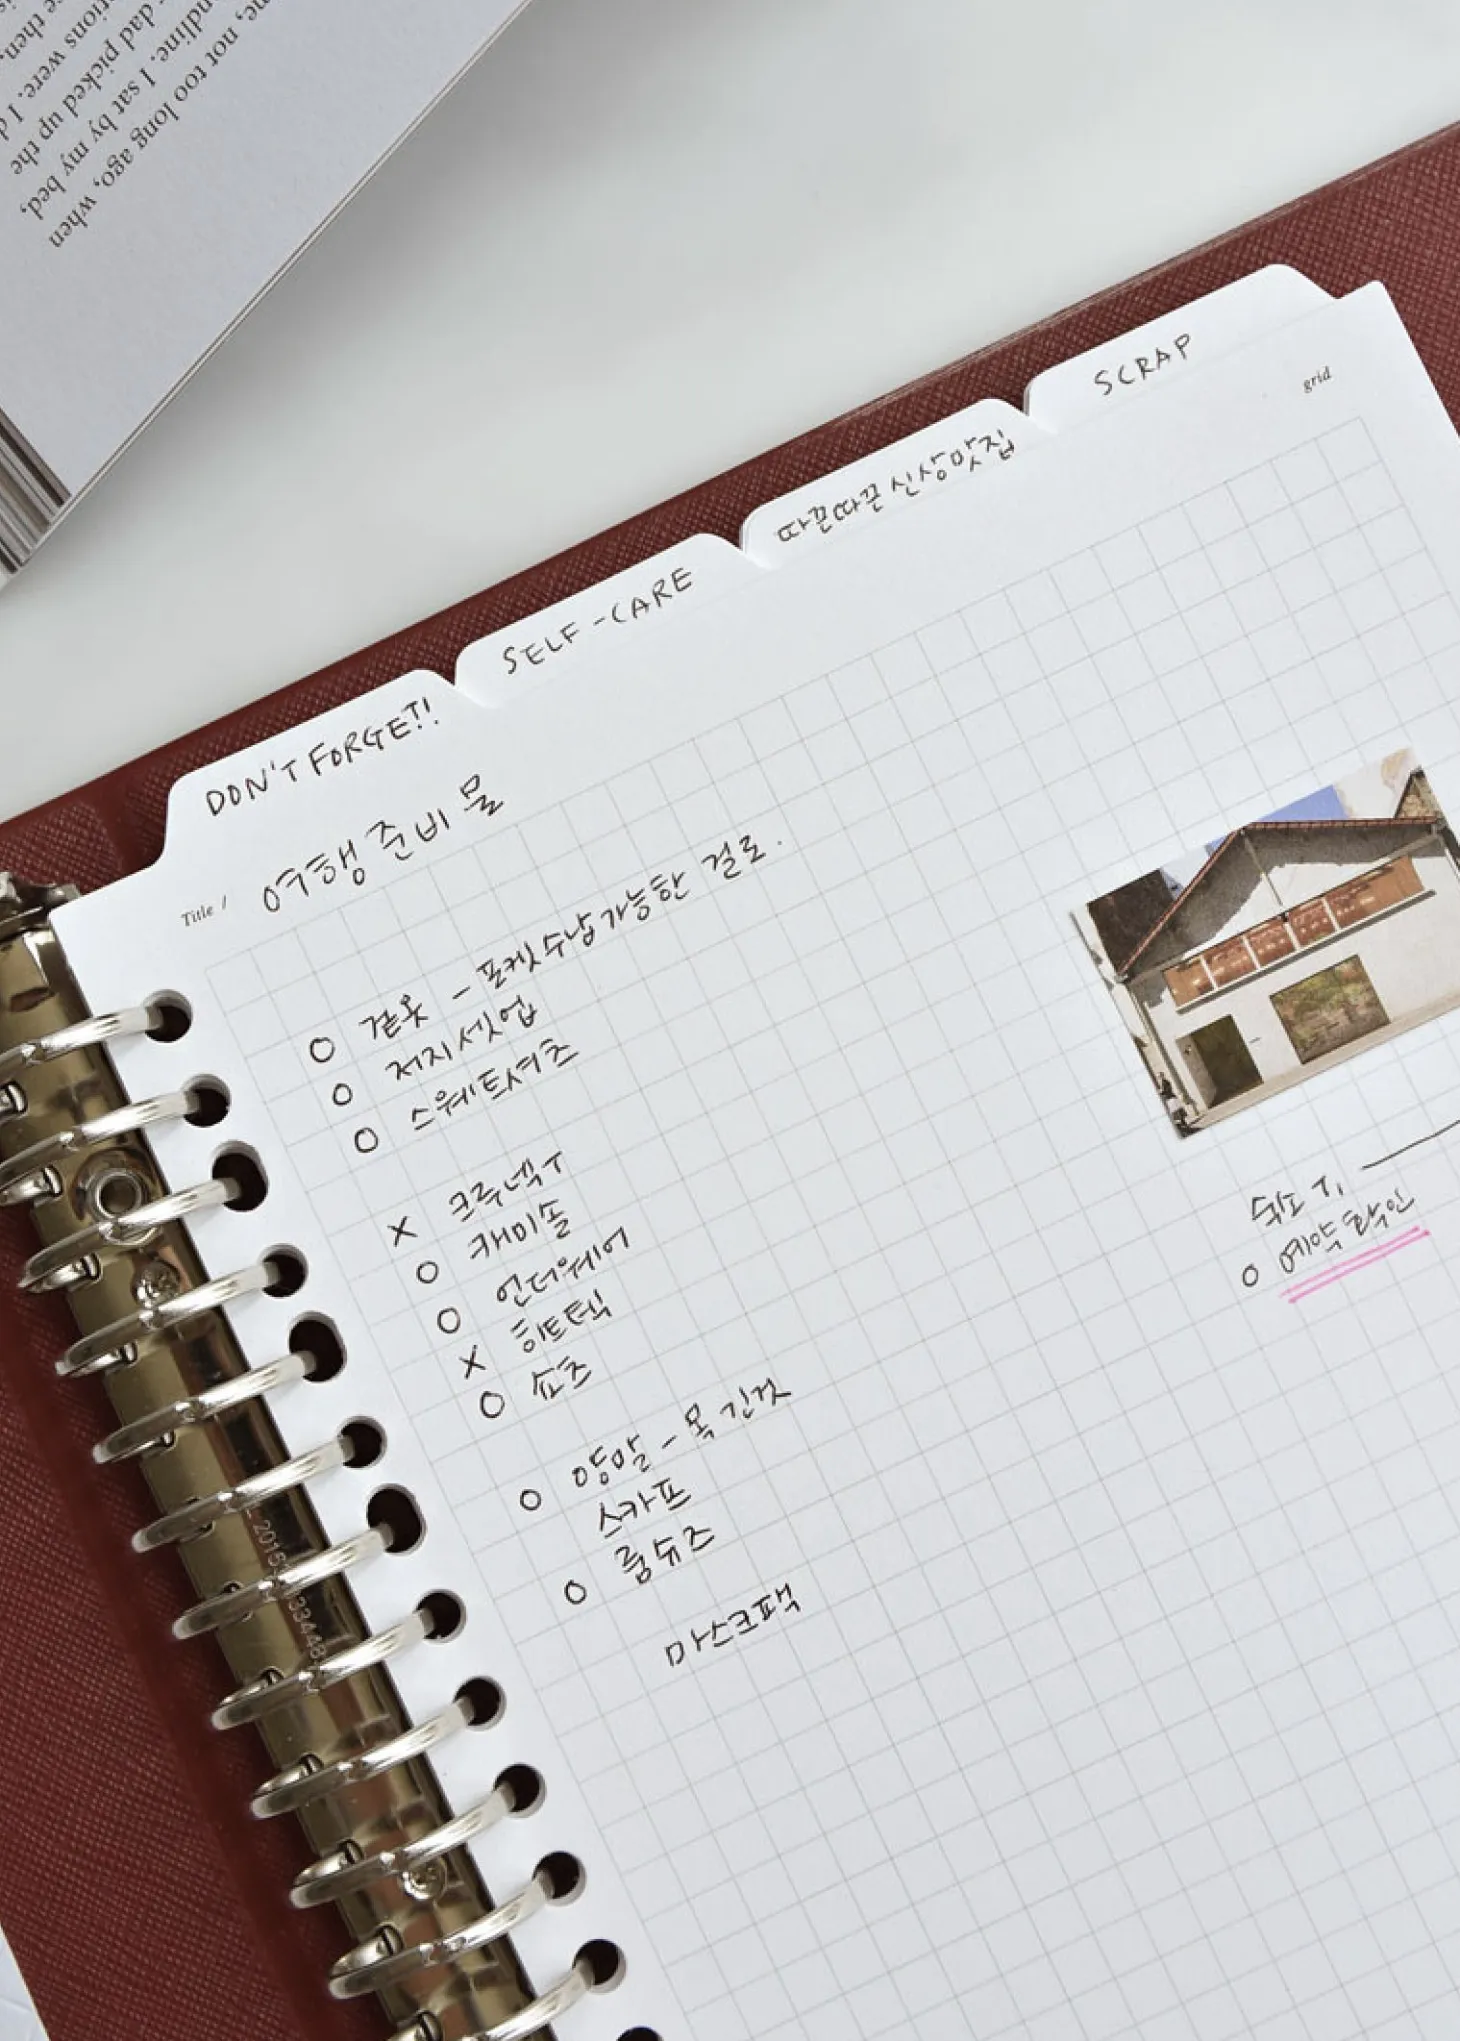 me, not too long ago, when
ndline. I sat by my bed,
dad picked up the
ptions were. I d
e then,
SCRAP
grid
따끈따끈 신상맛집
SELF-CARE
DON'T FORGET!!
Title / 여행 준비 물
O 겉옷 - 포켓 수납 가능한 걸로.
O 저지 셋업
O 스웨트셔츠
X 크루넥 T
O 캐미솔
O 언더웨어
X 히트텍
O 쇼츠
O 양말 - 목 긴것
스카프
O 룸슈즈
마스크팩
숙소
O 예약 확인